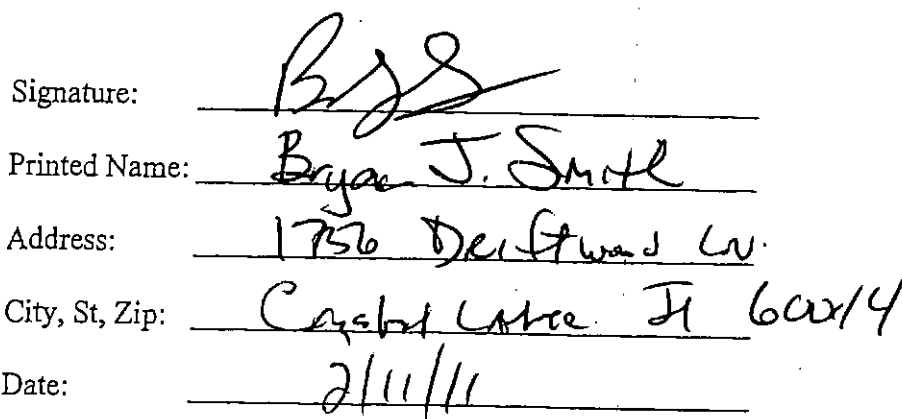 Signature: BJS
Printed Name: Bryan J. Smith
Address: 1756 Driftwood Ln.
City, St, Zip: Crystal Lake Il 60014
Date: 2/11/11